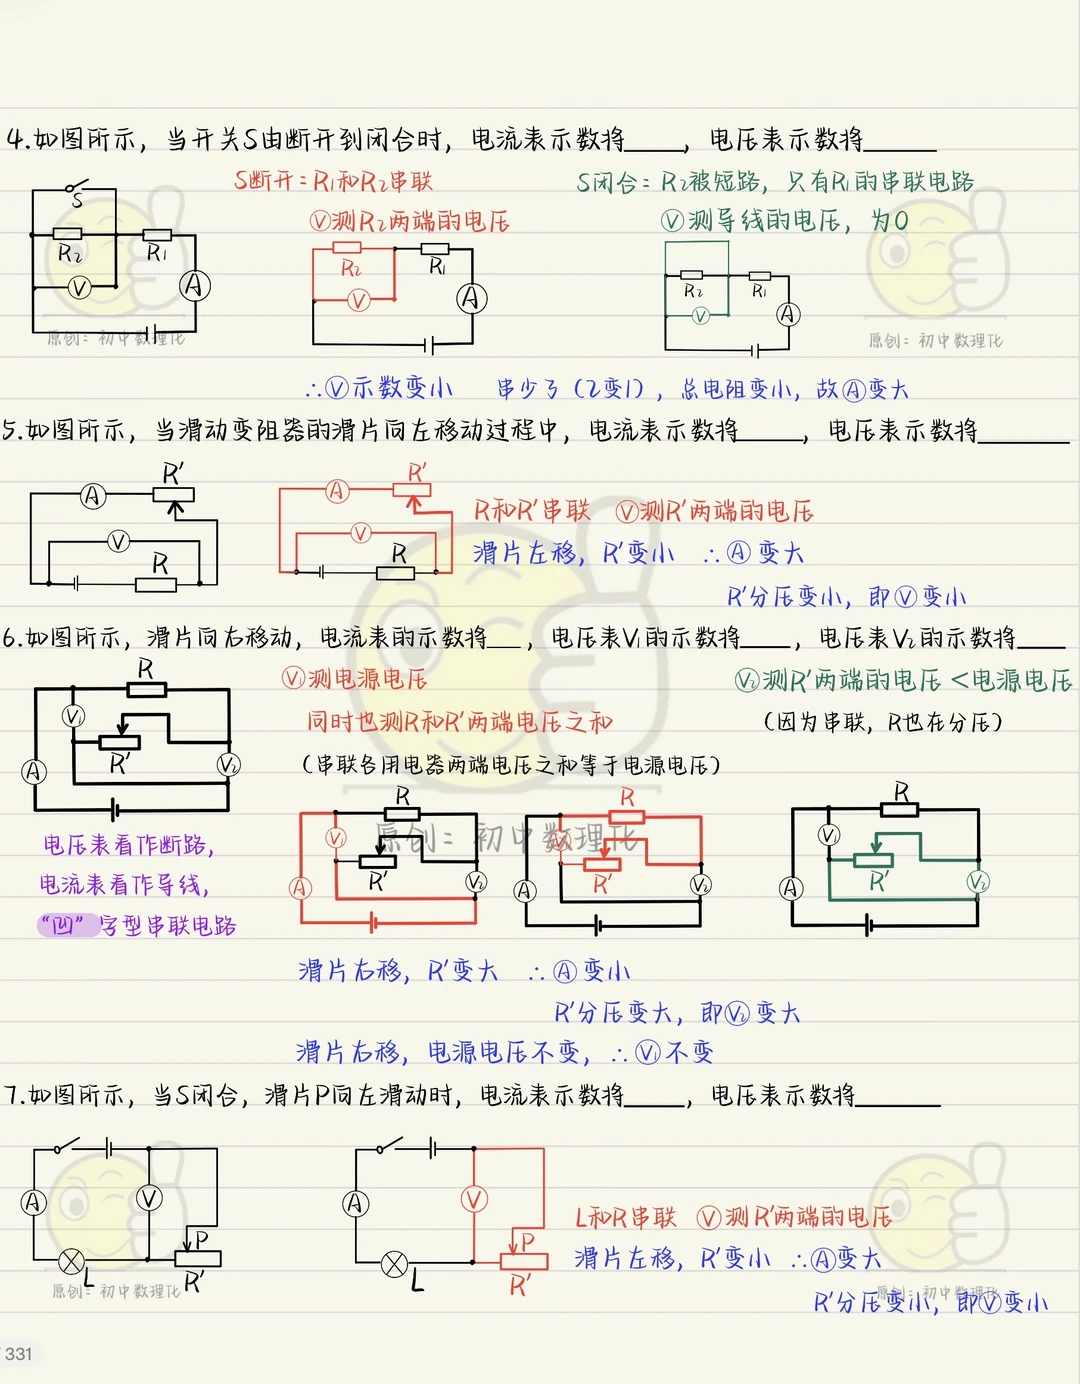 4.如图所示，当开关S由断开到闭合时，电流表示数将____，电压表示数将____
S断开：R₁和R₂串联
S闭合：R₂被短路，只有R₁的串联电路
Ⓥ测R₂两端的电压
Ⓥ测导线的电压，为0
S
R₂
R₁
V
A
R₂
R₁
V
A
R₂
R₁
V
A
原创：初中数理化
原创：初中数理化
∴Ⓥ示数变小 串少了（2变1），总电阻变小，故Ⓐ变大
5.如图所示，当滑动变阻器的滑片向左移动过程中，电流表示数将____，电压表示数将____
R'
A
V
R
R'
A
V
R
R和R'串联 Ⓥ测R'两端的电压
滑片左移，R'变小 ∴Ⓐ变大
R'分压变小，即Ⓥ变小
6.如图所示，滑片向右移动，电流表的示数将__，电压表V₁的示数将____，电压表V₂的示数将____
R
V₁
R'
A
V₂
V₁测电源电压
V₂测R'两端的电压＜电源电压
同时也测R和R'两端电压之和
（因为串联，R也在分压）
（串联各用电器两端电压之和等于电源电压）
原创：初中数理化
电压表看作断路，
电流表看作导线，
“凹”字型串联电路
R
V₁
R'
A
V₂
R
V₁
R'
A
V₂
R
V₁
R'
A
V₂
滑片右移，R'变大 ∴Ⓐ变小
R'分压变大，即V₂变大
滑片右移，电源电压不变，∴V₁不变
7.如图所示，当S闭合，滑片P向左滑动时，电流表示数将____，电压表示数将____
A
V
P
L
R'
A
V
P
L
R'
L和R串联 Ⓥ测R'两端的电压
滑片左移，R'变小 ∴Ⓐ变大
R'分压变小，即Ⓥ变小
原创：初中数理化
原创：初中数理化
331